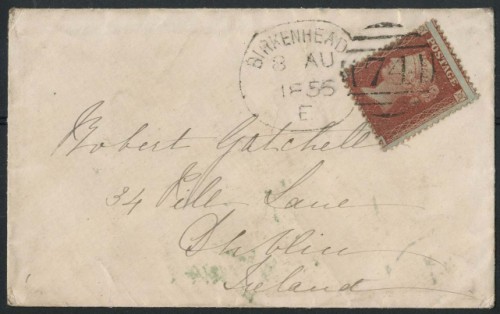 BIRKENHEAD
8 AU
1856
E
POSTAGE
Robert Gatchell
34 Pill Lane
Dublin
Ireland